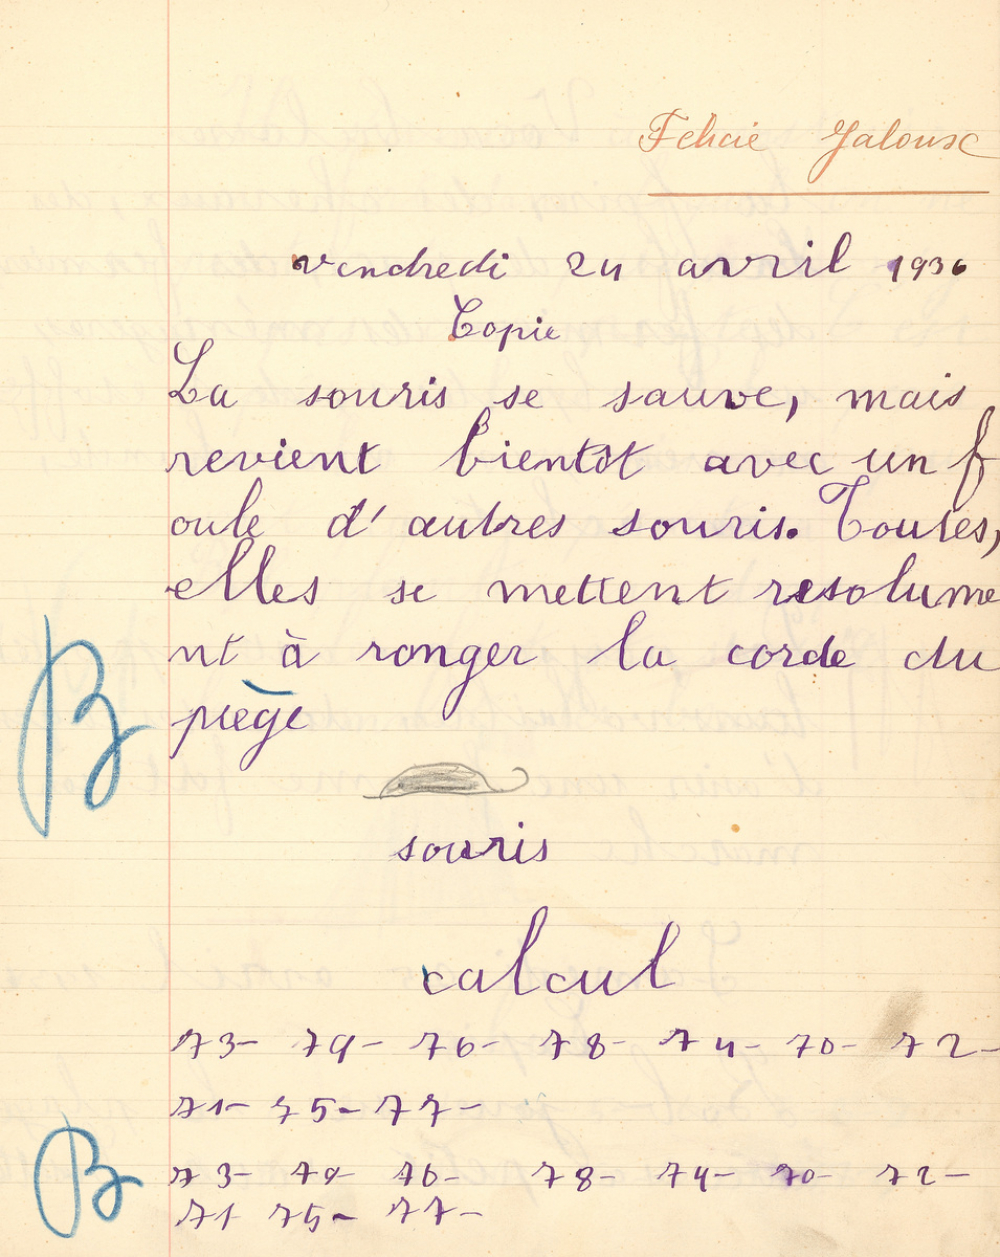 Felicie Jalouse
vendredi 24 avril 1936
Copie
La souris se sauve, mais
revient bientôt avec un f
oule d'autres souris. Toutes,
elles se mettent resolume
nt à ronger la corde du
piège
B
souris
calcul
73- 79- 76- 78- 74- 70- 72-
71- 75- 77-
B
73- 79- 76- 78- 74- 70- 72-
71 75- 77-